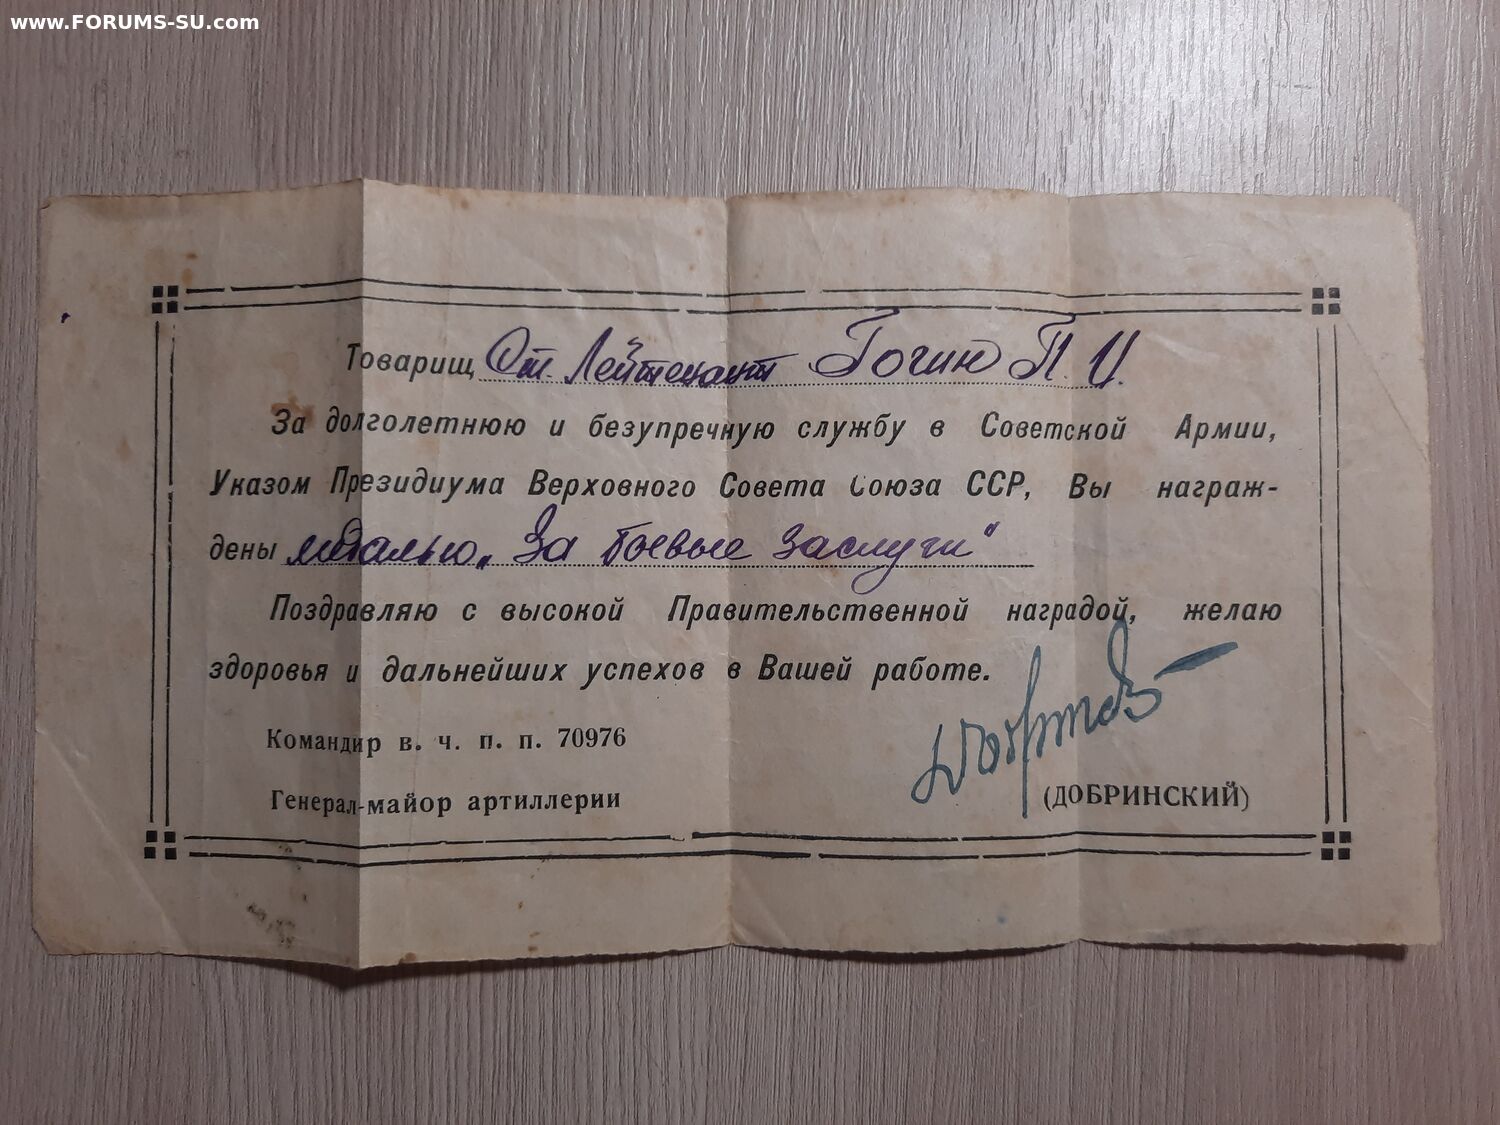 www.FORUMS-SU.com
Товарищ Ст. Лейтенант Гогин П. И.
За долголетнюю и безупречную службу в Советской Армии,
Указом Президиума Верховного Совета Союза ССР, Вы награж-
дены медалью „За боевые заслуги"
Поздравляю с высокой Правительственной наградой, желаю
здоровья и дальнейших успехов в Вашей работе.
Командир в. ч. п. п. 70976
Генерал-майор артиллерии (ДОБРИНСКИЙ)